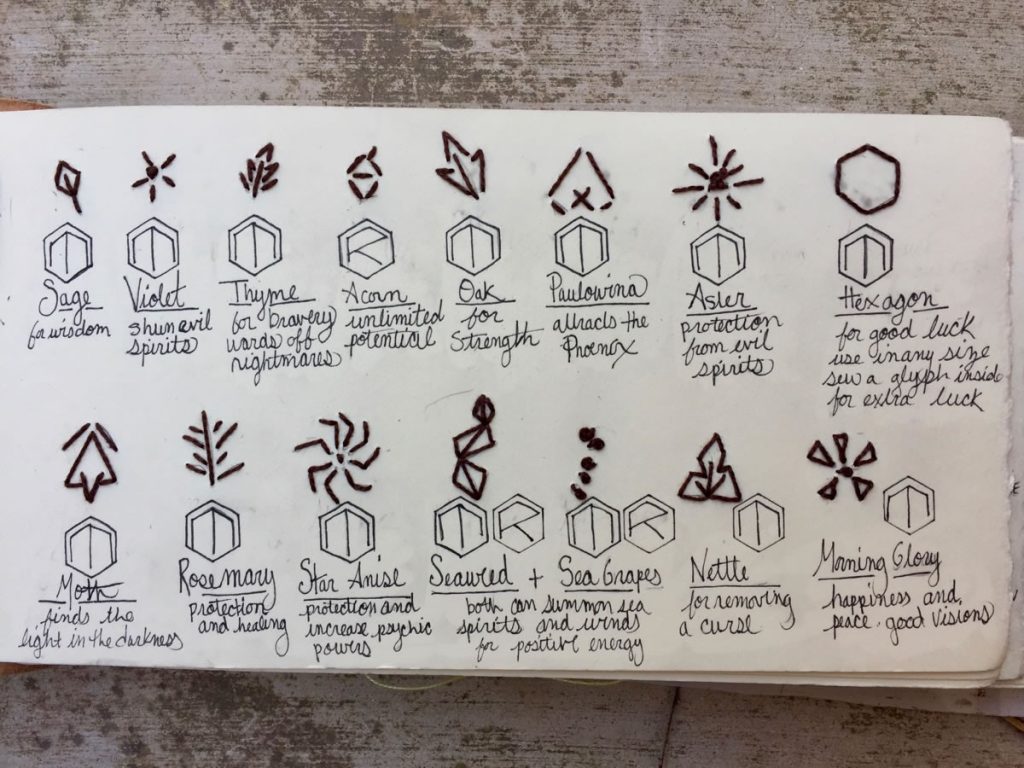 Sage
for wisdom
Violet
shun evil
spirits
Thyme
for bravery
wards off
nightmares
Acorn
unlimited
potential
Oak
for
Strength
Paulowina
attracts the
Phoenix
Aster
protection
from evil
spirits
Hexagon
for good luck
use in any size
sew a glyph inside
for extra luck
Moth
finds the
light in the darkness
Rosemary
protection
and healing
Star Anise
protection and
increase psychic
powers
Seaweed + Sea Grapes
both can summon sea
spirits and winds
for positive energy
Nettle
for removing
a curse
Morning Glory
happiness and
peace. good visions